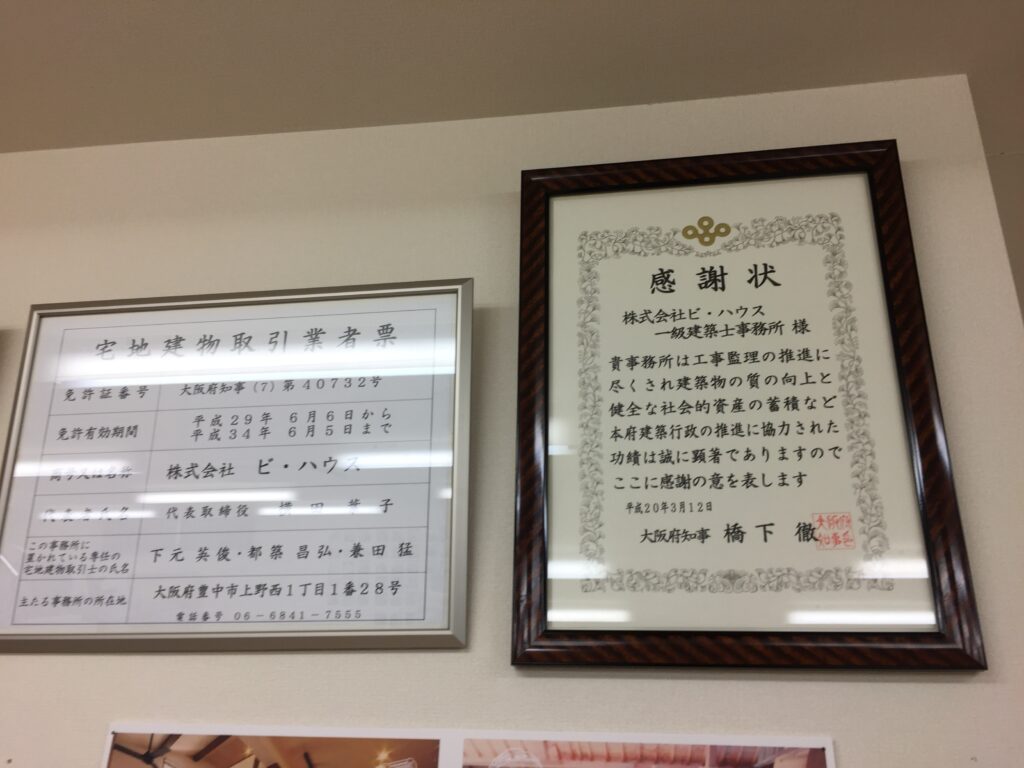 宅地建物取引業者票
免許証番号 大阪府知事(7)第40732号
免許有効期間 平成29年 6月6日から
平成34年 6月5日まで
商号又は名称 株式会社 ビ・ハウス
代表者氏名 代表取締役 田 子
この事務所に
置かれている専任の
宅地建物取引士の氏名
下元 英俊・都築 昌弘・兼田 猛
主たる事務所の所在地 大阪府豊中市上野西1丁目1番28号
電話番号 06-6841-7555
感謝状
株式会社ビ・ハウス
一級建築士事務所 様
貴事務所は工事監理の推進に
尽くされ建築物の質の向上と
健全な社会的資産の蓄積など
本府建築行政の推進に協力された
功績は誠に顕著でありますので
ここに感謝の意を表します
平成20年3月12日
大阪府知事 橋下 徹